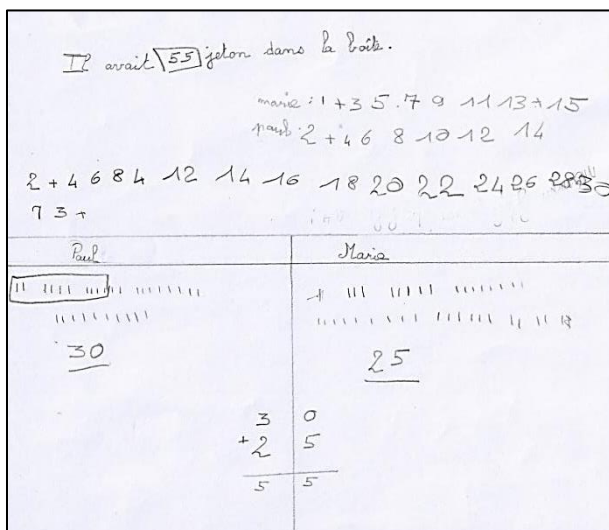 Il avait 55 jeton dans la boîte.
marie : 1 + 3 5 . 7 9 11 13 + 15
paul : 2 + 4 6 8 10 12 14
2 + 4 6 8 4 12 14 16 18 20 22 24 26 28 30
7 3 +
Paul Marie
30 25
3 0
+ 2 5
5 5